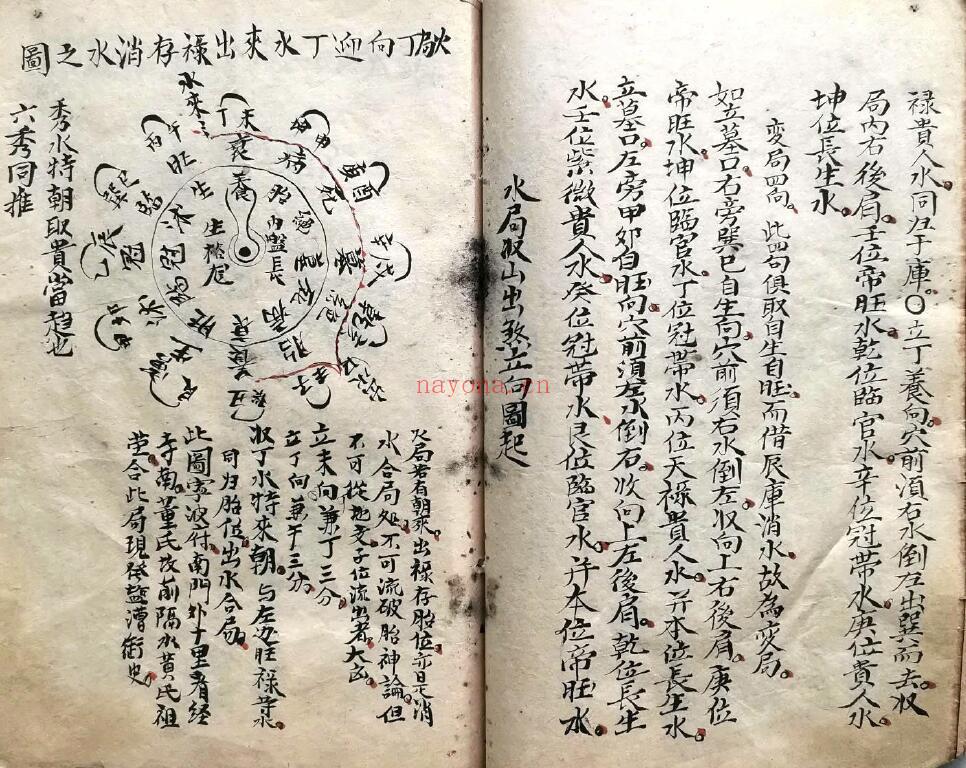 禄貴人水同归于庫〇立丁養向穴前須右水倒左出巽而去収
局內右後肩壬位帝旺水乾位臨官水辛位冠帶水庚位貴人水
坤位長生水
変局四向 此四句俱取自生自旺而借辰庫消水故為変局
如立墓口右旁巽巳自生向穴前須右水倒左収向上右後肩庚位
帝旺水坤位臨官水丁位冠帶水丙位天禄貴人水并本位長生水
立墓口左旁甲卯自旺向穴前須左水倒右收向上左後肩乾位長生
水壬位紫微貴人水癸位冠帶水艮位臨官水并本位帝旺水
水局収山出煞立向圖起
火局丁向迎丁水來出禄存消水之圖
水來
秀水特朝取貴當趋也
六秀同推
天
丁
衰
病
死
墓
養
生
旺
冠
內盤長
胎
庚酉
辛戌
午
丙
及局若有朝來出禄存胎位亦是消
水合局処不可流破胎神論但
不可從地支子位流出者大凶
立未向兼丁三分
立丁向兼午三分
収丁水特來朝与左边旺禄等水
同归胎位出水合局
此圖寧波府南門外十里看經
寺南董氏改前隔水黄氏祖
茔合此局現發鹽漕衙史
nayona.cn